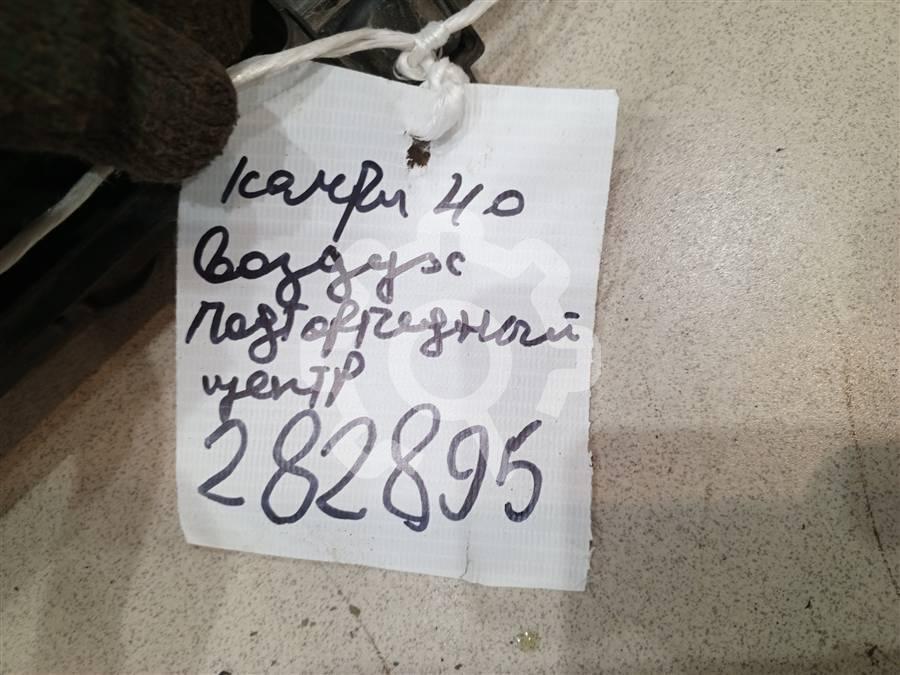 Камри 40
Воздух
подторпедный
центр
282895